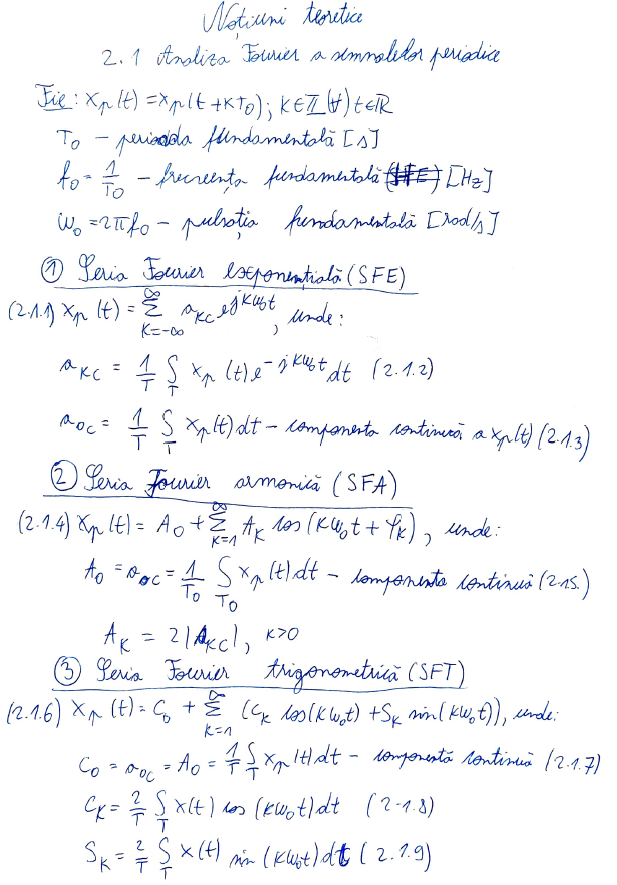 Noțiuni teoretice
2.1 Analiza Fourier a semnalelor periodice
Fie: x_p(t) = x_p(t+KT_0); K∈ℤ (∀) t∈ℝ
T_0 – perioada fundamentală [s]
f_0 = 1/T_0 – frecvența fundamentală [Hz]
ω_0 = 2πf_0 – pulsația fundamentală [rad/s]
① Seria Fourier exponențială (SFE)
(2.1.1) x_p(t) = ∑_{K=-∞}^{∞} a_{KC} e^{jKω_0t}, unde:
a_{KC} = 1/T ∫_T x_p(t) e^{-jKω_0t} dt (2.1.2)
a_{0C} = 1/T ∫_T x_p(t) dt – componenta continuă a x_p(t) (2.1.3)
② Seria Fourier armonică (SFA)
(2.1.4) x_p(t) = A_0 + ∑_{K=1}^{∞} A_K cos(Kω_0t + φ_K), unde:
A_0 = a_{0C} = 1/T_0 ∫_{T_0} x_p(t) dt – componenta continuă (2.15.)
A_K = 2|A_{KC}|, K>0
③ Seria Fourier trigonometrică (SFT)
(2.1.6) x_p(t) = C_0 + ∑_{K=1}^{∞} (C_K cos(Kω_0t) + S_K sin(Kω_0t)), unde:
C_0 = a_{0C} = A_0 = 1/T ∫_T x_p(t) dt – componenta continuă (2.1.7)
C_K = 2/T ∫_T x(t) cos(Kω_0t) dt (2-1.8)
S_K = 2/T ∫_T x(t) sin(Kω_0t) dt (2.1.9)